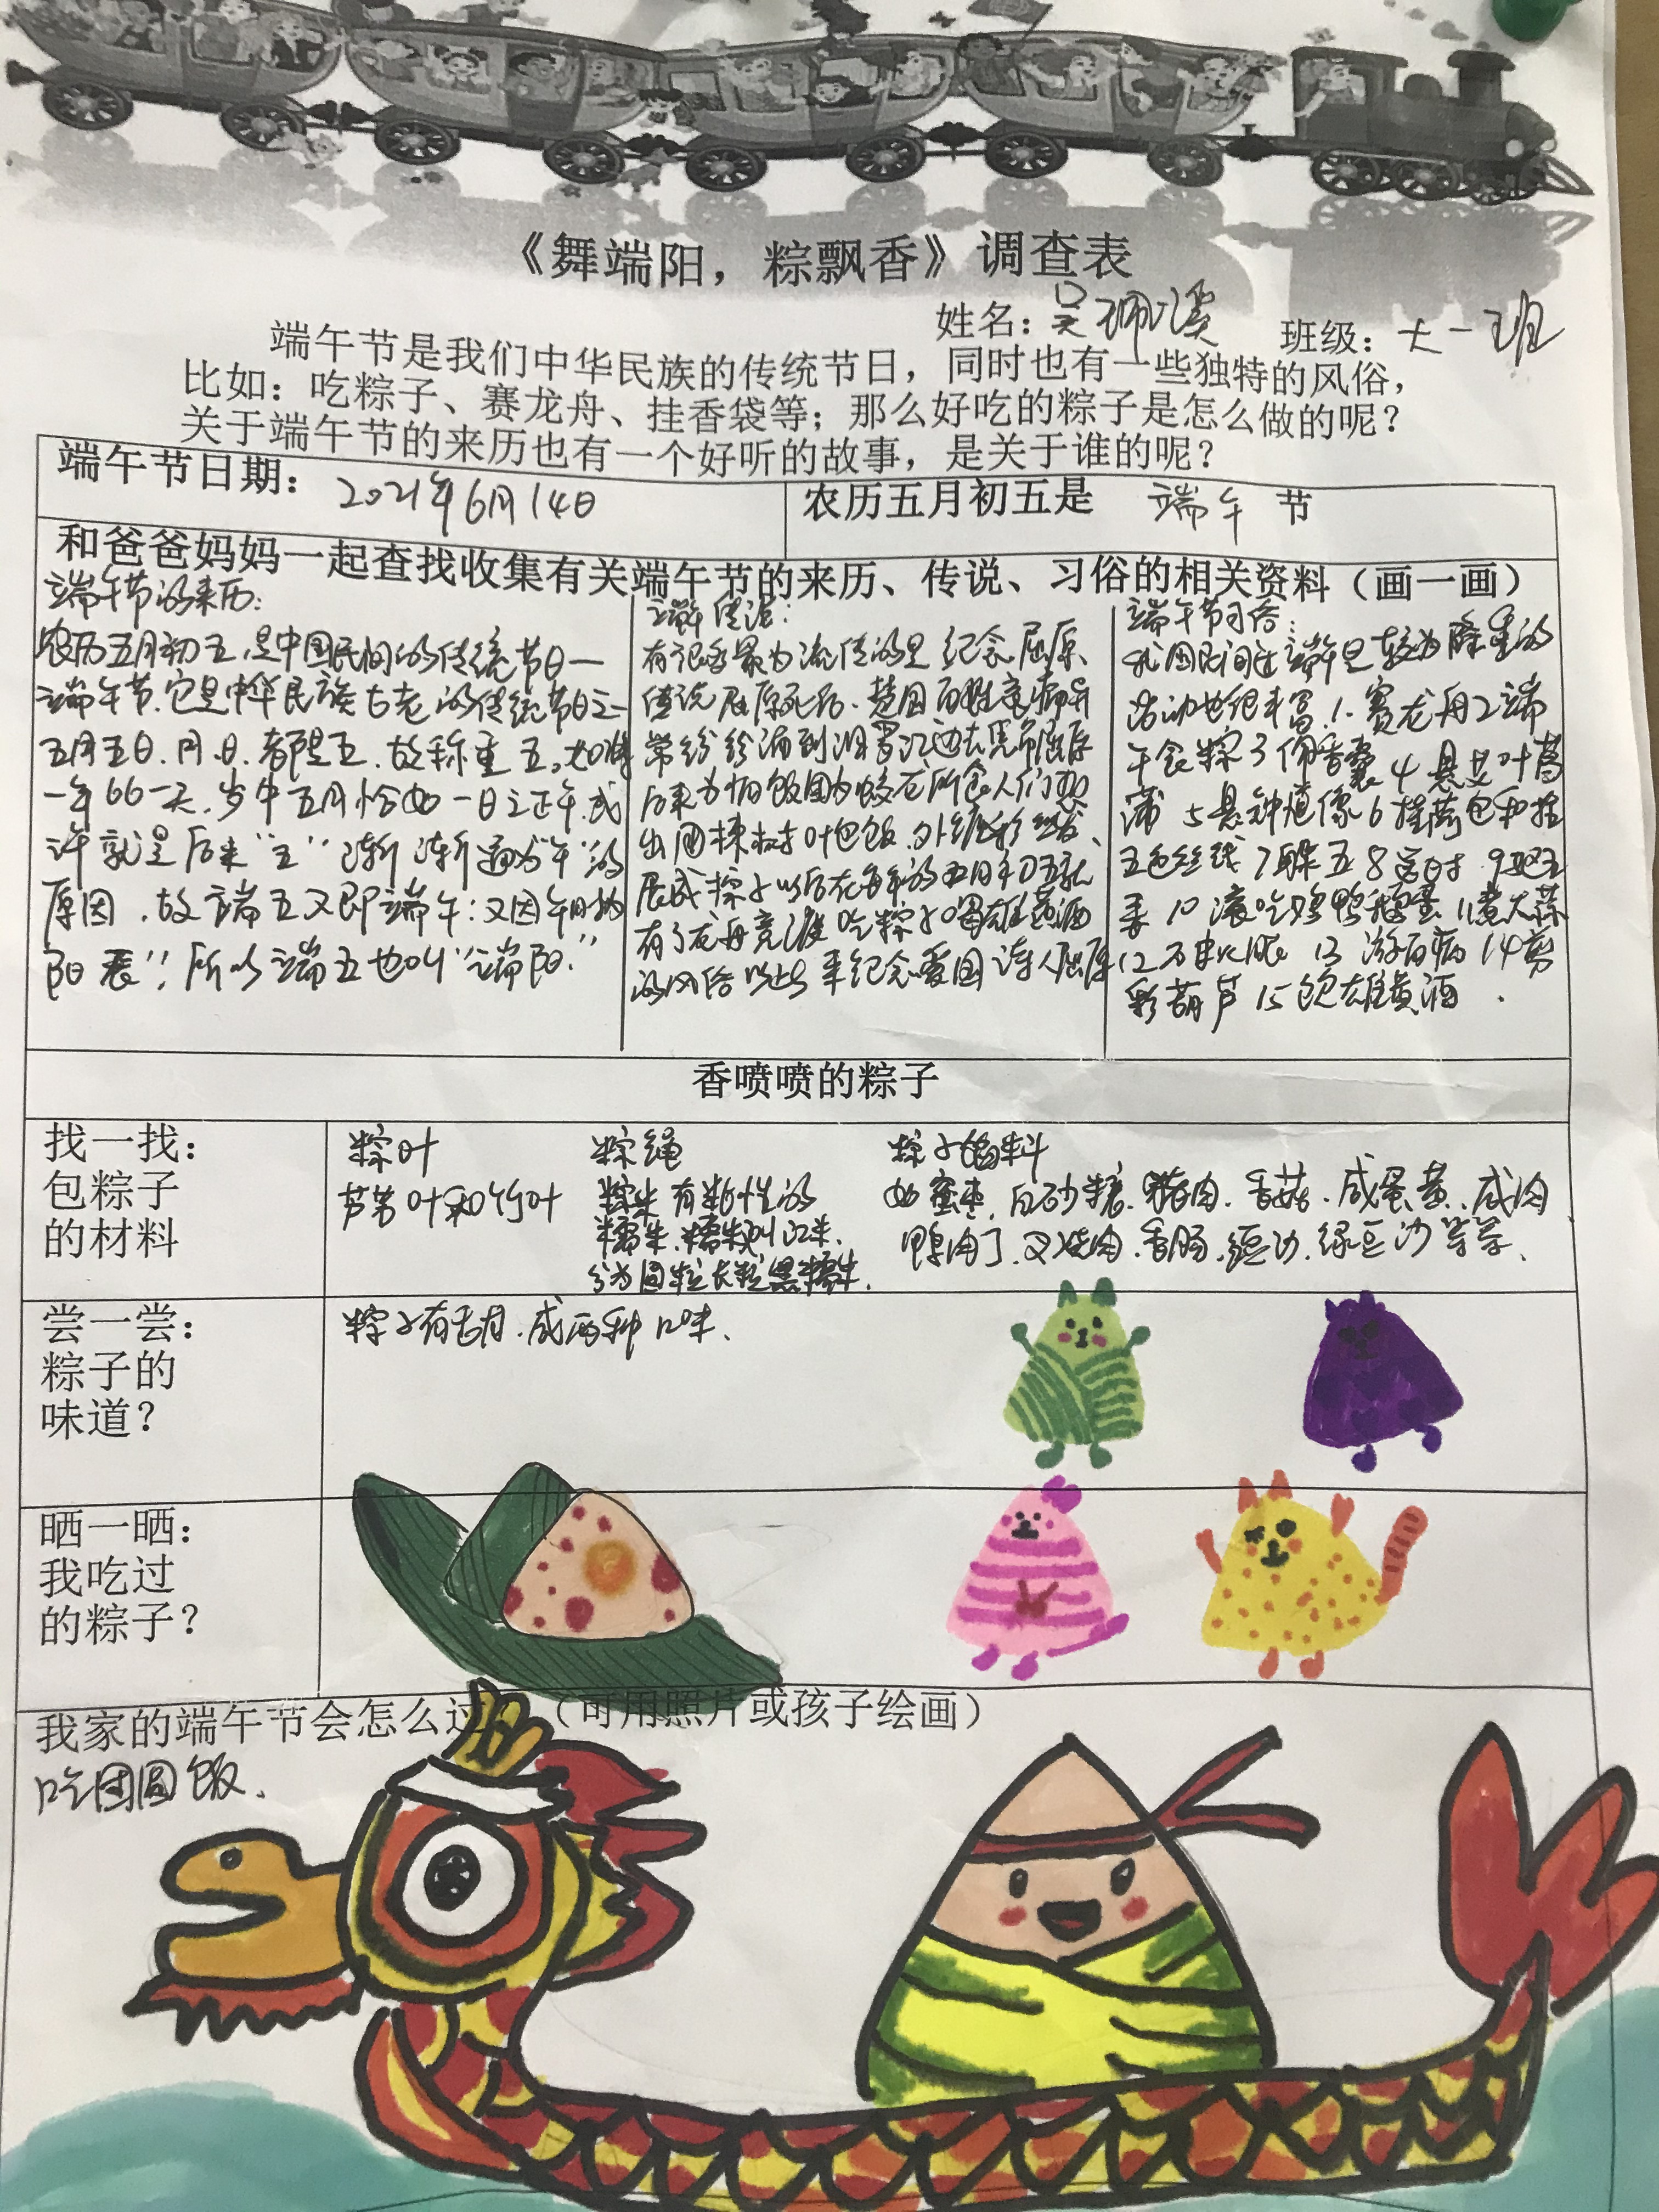 《舞端阳，粽飘香》调查表
姓名：吴珮溪 班级：大一班
端午节是我们中华民族的传统节日，同时也有一些独特的风俗，
比如：吃粽子、赛龙舟、挂香袋等；那么好吃的粽子是怎么做的呢？
关于端午节的来历也有一个好听的故事，是关于谁的呢？
端午节日期：2021年6月14日
农历五月初五是 端午 节
和爸爸妈妈一起查找收集有关端午节的来历、传说、习俗的相关资料（画一画）
端午节的来历：
农历五月初五，是中国民间的传统节日一
端午节.它是中华民族古老的传统节日之一
五月五日.月.日.都是五.故称重五。
一年66一天.岁中五月恰如一日之正午.或
许就是后来“五”渐渐通为“午”的
原因.故端五又即端午：又因午月为
阳 所以端五也叫“端阳.”
端午传说：
有很多最为流传的是纪念屈原、
传说屈原死后.楚国百姓哀痛异
常纷纷涌到汨罗江边去凭吊屈原
后来为怕饭团为蛟龙所食人们想
出用楝树叶包饭.外缠彩丝发、
展成粽子以后在每年的五月初五就
有了龙舟竞渡吃粽子喝雄黄酒
的风俗以此来纪念爱国诗人屈原
端午节习俗：
我国民间过端午是较为隆重的
活动也很丰富.1.赛龙舟2端
午食粽3佩香囊4悬艾叶菖
蒲 5悬钟馗像6挂荷包和拴
五色丝线 7躲五8 9驱五
毒 10滚吃鸡鸭鹅蛋 11煮大蒜
12 13游百病 14剪
彩葫芦 15饮雄黄酒.
香喷喷的粽子
找一找：
包粽子
的材料
粽叶
芦苇叶和竹叶
粽绳
粽米有粘性的
糯米.糯米叫江米.
分为圆粒长粒黑糯米.
粽子馅料
如蜜枣.白砂糖.猪肉.香菇.咸蛋黄.咸肉
鸭肉丁.叉烧肉.香肠.豆沙.绿豆沙等等.
尝一尝：
粽子的
味道？
粽子有甜.咸两种口味.
晒一晒：
我吃过
的粽子？
我家的端午节会怎么过 （可用照片或孩子绘画）
吃团圆饭.